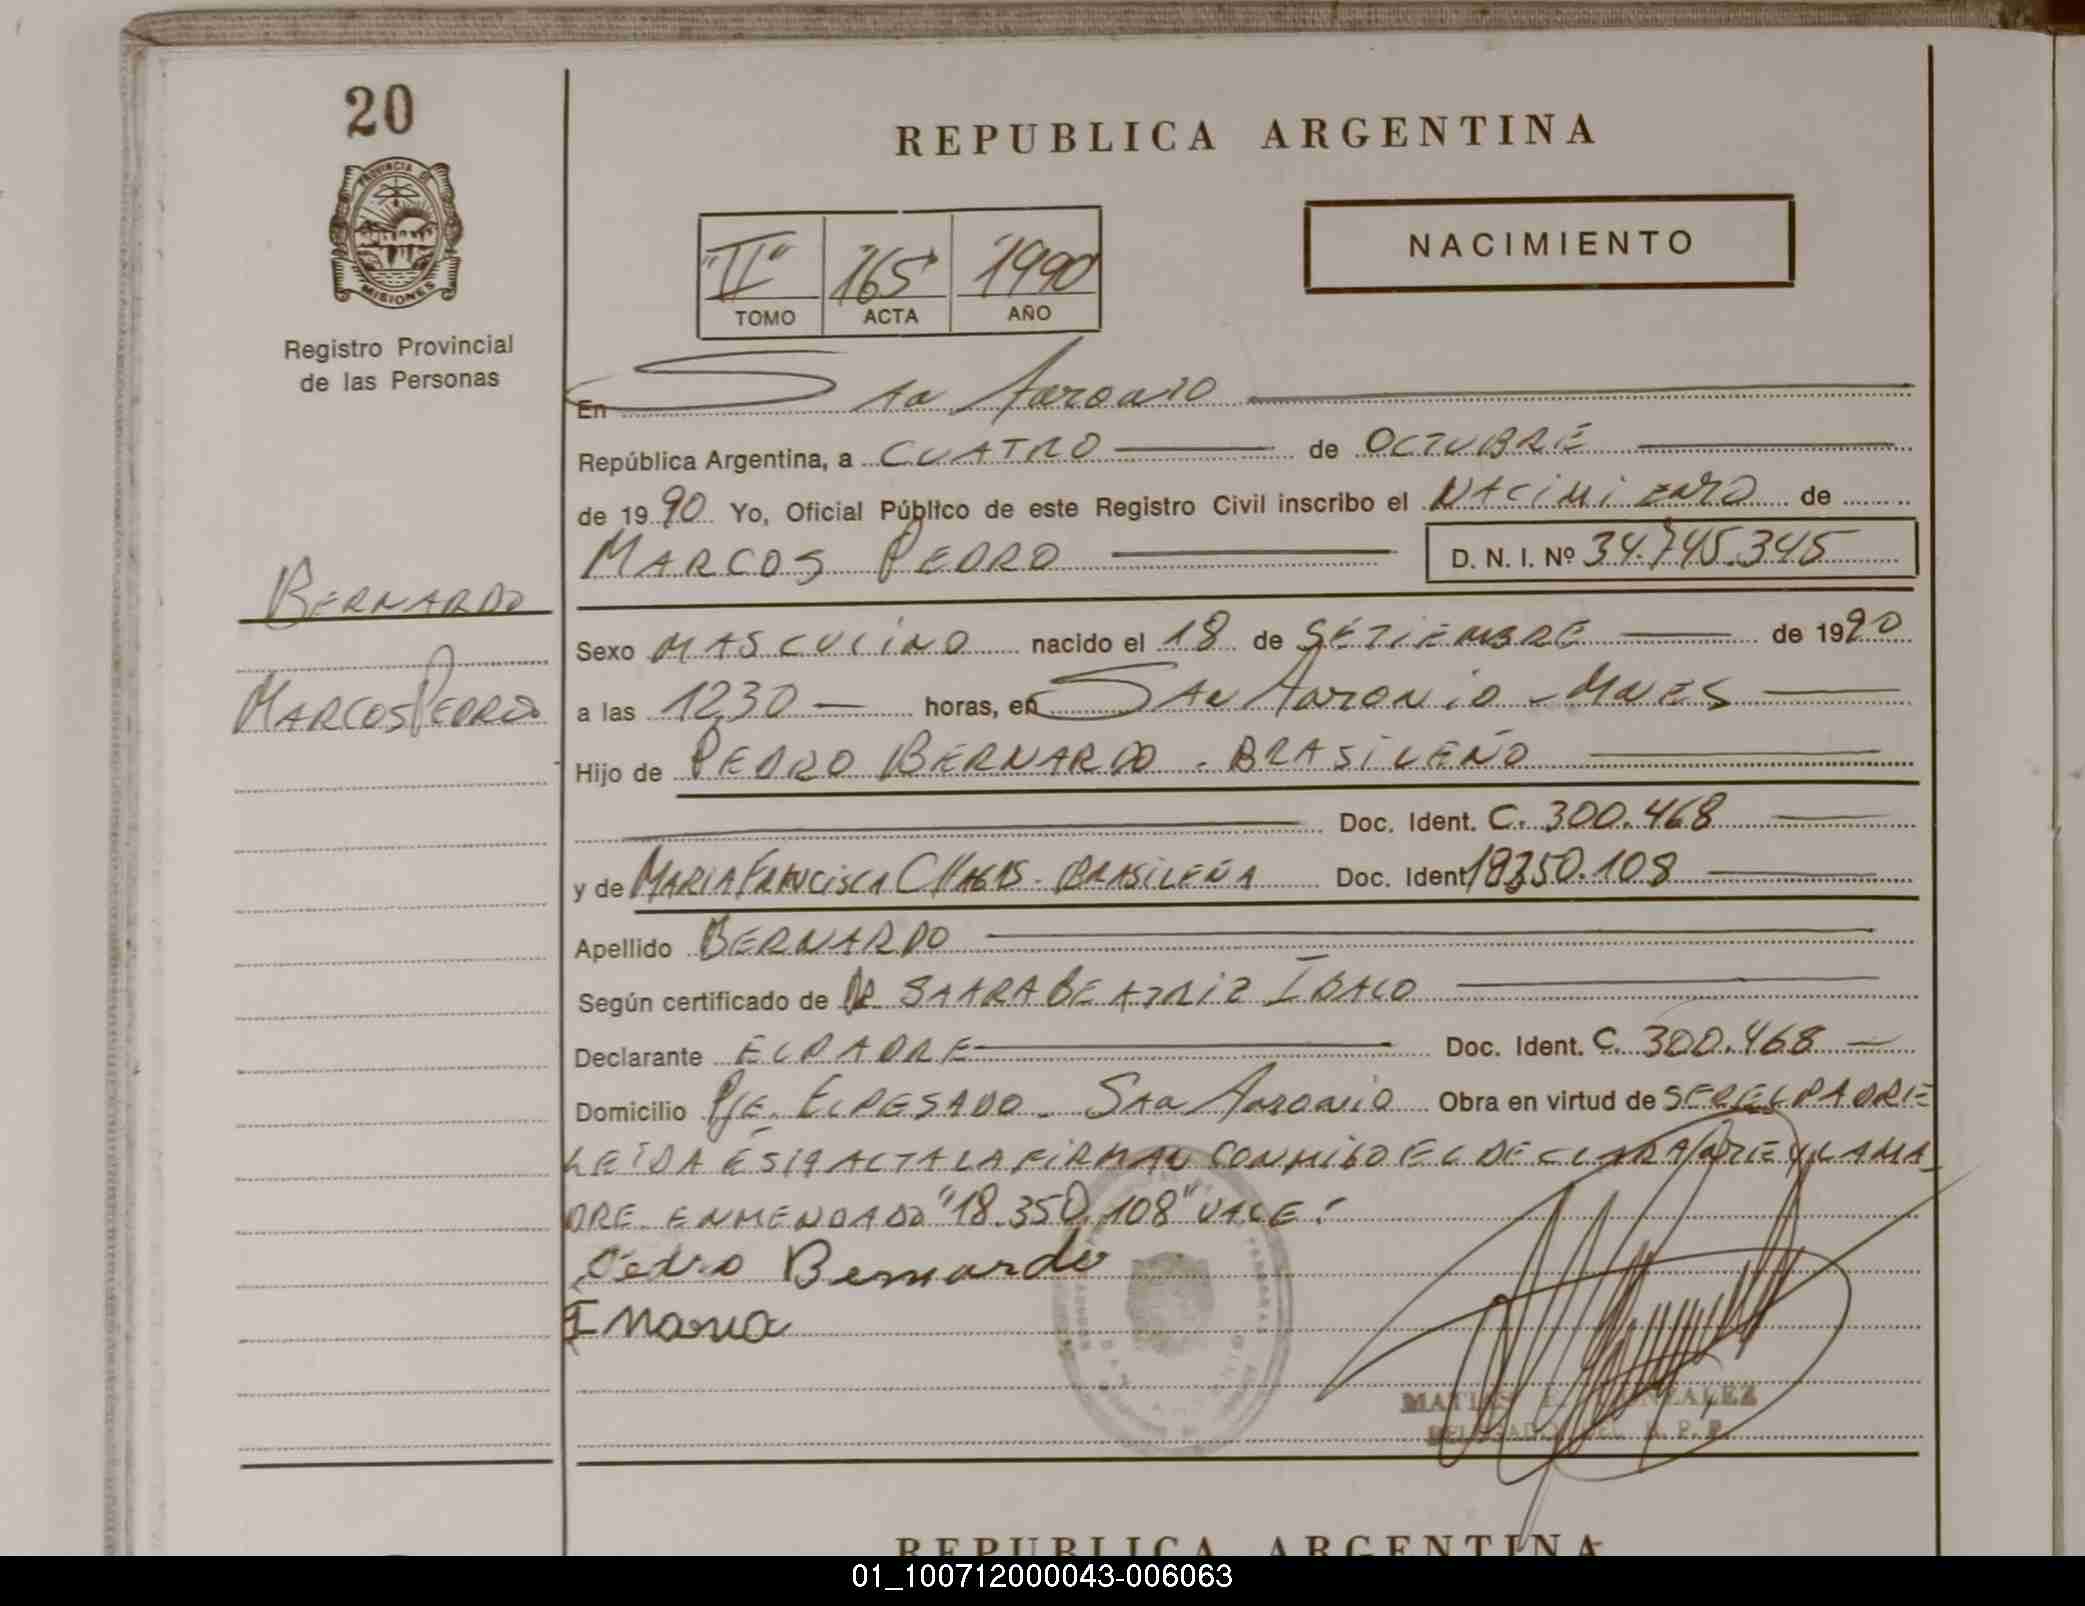 20
PROVINCIA DE
MISIONES
Registro Provincial
de las Personas
BERNARDO
MARCOS PEDRO
REPUBLICA ARGENTINA
"II" 165 1990
TOMO ACTA AÑO
NACIMIENTO
En San Antonio
República Argentina, a CUATRO de OCTUBRE
de 1990 Yo, Oficial Público de este Registro Civil inscribo el NACIMIENTO de
MARCOS PEDRO D. N. I. Nº 34.745.345
Sexo MASCULINO nacido el 18 de SETIEMBRE de 1990
a las 1230 horas, en SAN ANTONIO - MNES
Hijo de PEDRO BERNARDO - BRASILEÑO
Doc. Ident. C. 300.468
y de MARIA FRANCISCA CHAGAS - BRASILEÑA Doc. Ident 18350.108
Apellido BERNARDO
Según certificado de BEATRIZ
Declarante EL PADRE Doc. Ident. C. 300.468
Domicilio PJE. EL PESADO - SAN ANTONIO Obra en virtud de SER EL PADRE
LEIDA ESTA ACTA LA FIRMAN CONMIGO EL DECLARANTE Y LA MA
DRE ENMENDADO "18.350.108" VALE.
Pedro Bernardo
Maria
MATIAS GONZALEZ
DELEGADO DEL R. P. P.
REPUBLICA ARGENTINA
01_100712000043-006063